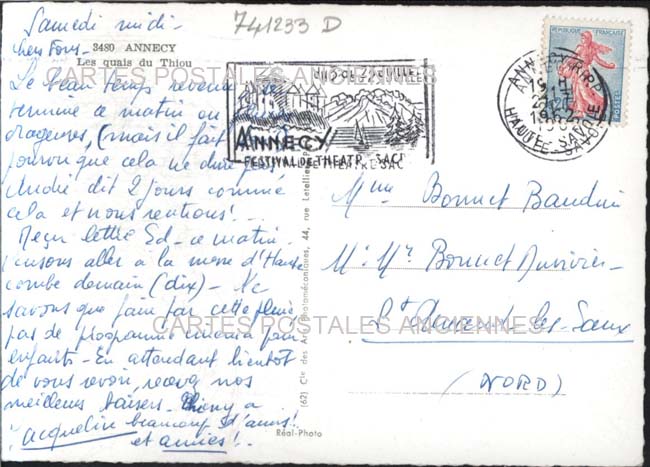 741233 D
Samedi midi -
chers Tous -
3480 ANNECY
Les quais du Thiou
CARTES POSTALES ANCIENNES
Le beau temps revenu se
termine ce matin en
orageuse, (mais il fait
que cela ne dure pas
André dit 2 jours comme
cela et nous rentrons! ...
Reçu lettre Ed - ce matin.
pensons aller à la messe d'Haute
combe demain (dix) - Ne
savons que faire par cette pluie
pas de programme cinéma pour
enfants - En attendant bientôt
de vous revoir, recevez nos
meilleurs baisers - Thiony a
Jacqueline beaucoup d'amis!
et amies!
ANNECY
FESTIVAL DE THEATRE SACRE
ANNECY R.P.
HAUTE SAVOIE
1962
REPUBLIQUE FRANÇAISE
POSTES
Mme Bonnet Baudin
Mr Bonnet
St Amand-les-Eaux
(NORD)
CARTES POSTALES ANCIENNES
(62) Cie des Arts Photomécaniques, 44, rue Letellier, P
Réal-Photo